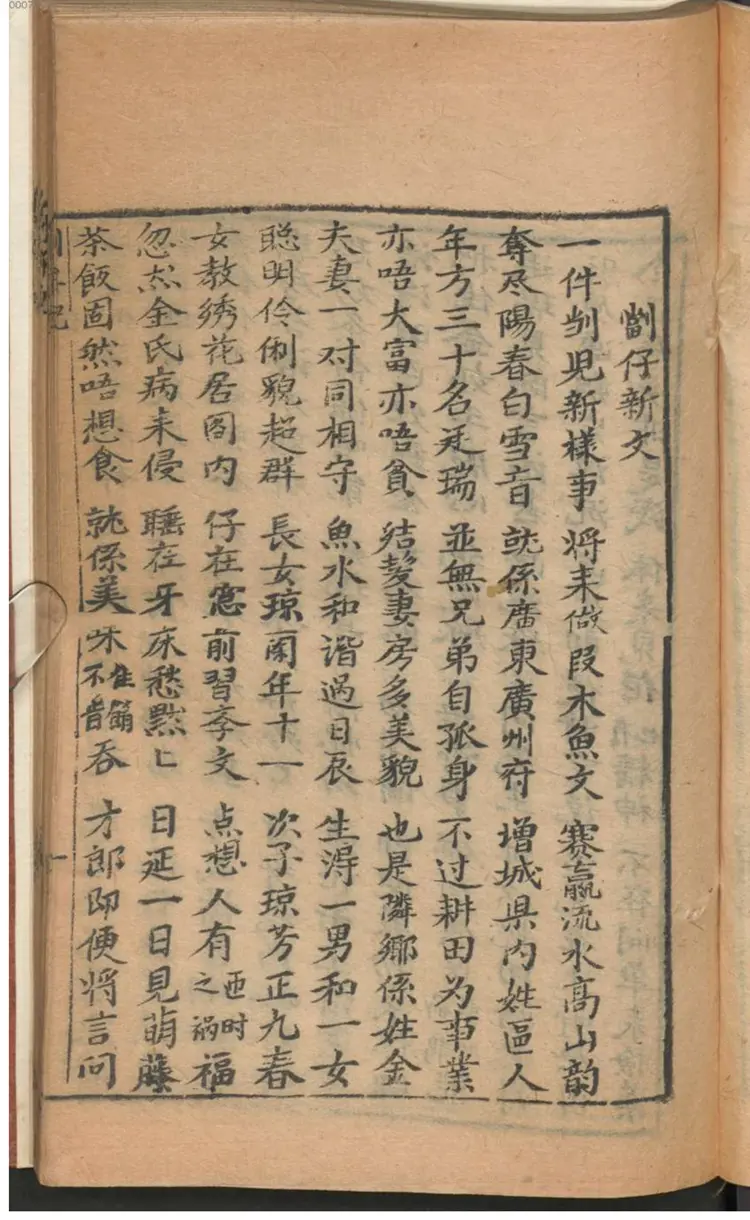 劏仔新文
一件㓥児新樣事 将来做段木魚文 赛赢流水高山韵
奪尽陽春白雪音 就係廣東廣州府 增城県内姓區人
年方三十名廷瑞 並無兄弟自孤身 不过耕田为事業
亦唔大富亦唔貧 结髮妻房多美貌 也是隣鄉係姓金
夫妻一对同相守 魚水和諧過日辰 生淂一男和一女
聪明伶俐貌超群 長女琼闺年十一 次子琼芳正九春
女教绣花居阁内 仔在窓前習李文 点想人有时之祸福
忽然金氏病来侵 睡在牙床愁默匕 日延一日見萌藤
茶飯固然唔想食 就係美味佳餚不肯吞 才郎即便将言問